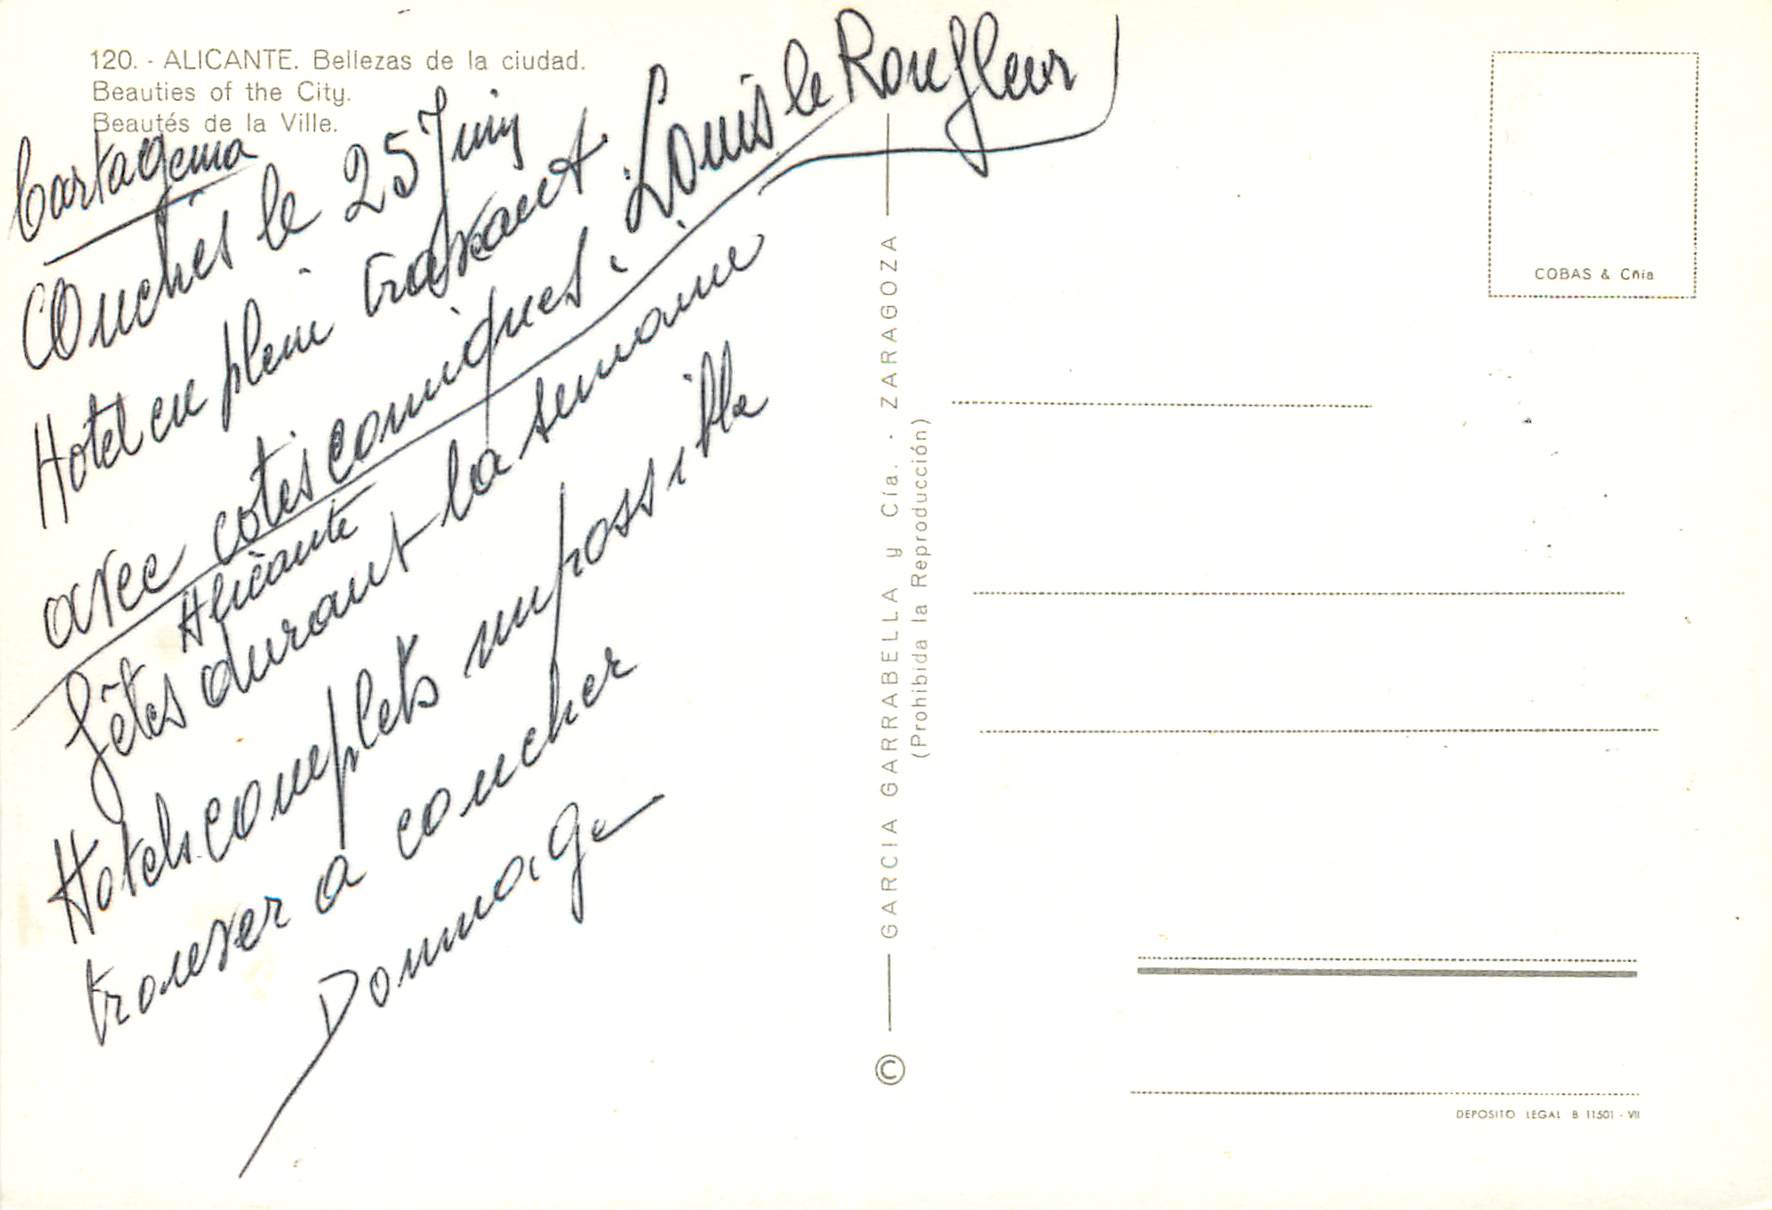 120. - ALICANTE. Bellezas de la ciudad.
Beauties of the City.
Beautés de la Ville.
Cartagena
Couchés le 25 Juin
Hotel en plein travaux
avec cotés comiques. Louis le Ronfleur
Alicante
fêtes durant la semaine
Hotels complets impossible
trouver a coucher
Dommage
GARCIA GARRABELLA y Cía. - ZARAGOZA
(Prohibida la Reproducción)
©
COBAS & Cñia
DEPOSITO LEGAL B 11501 - VII